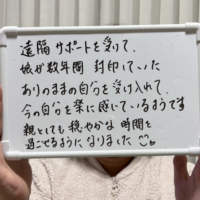 遠隔サポートを受けて、
娘が数年間 封印していた
ありのままの自分を受け入れて、
今の自分を楽に感じているようです
親としても 穏やかな 時間を
過ごせるように なりました